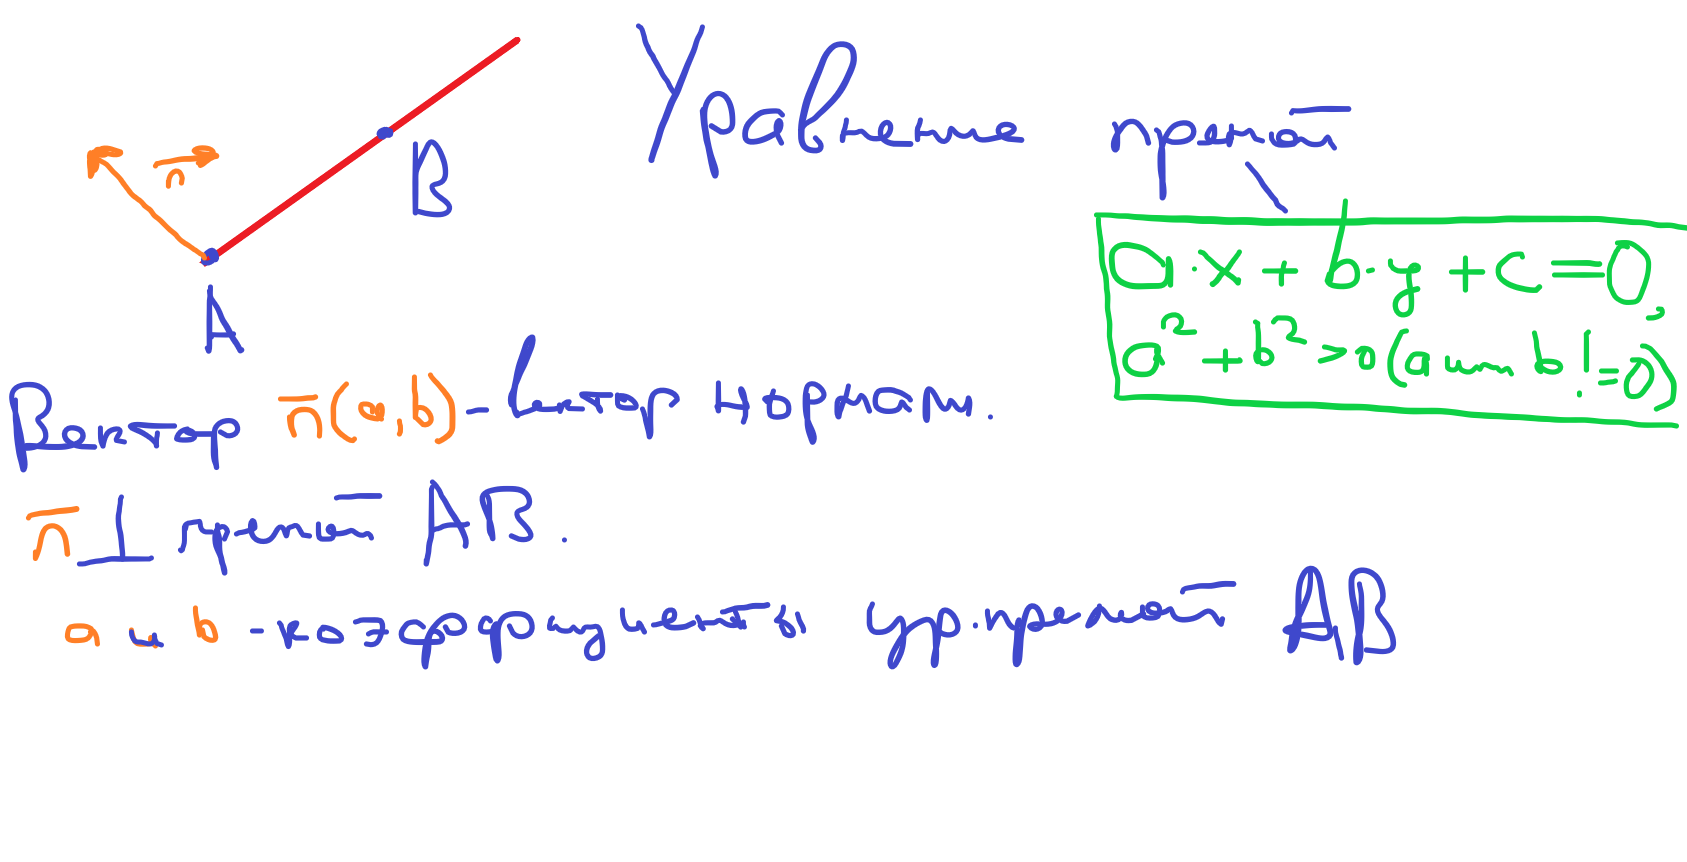 Уравнение прямой
n
B
a·x + b·y + c = 0,
A
a² + b² > 0 (a или b != 0)
Вектор n(a,b) - вектор нормали.
n ⊥ прямой AB.
a и b - коэффициенты ур. прямой AB